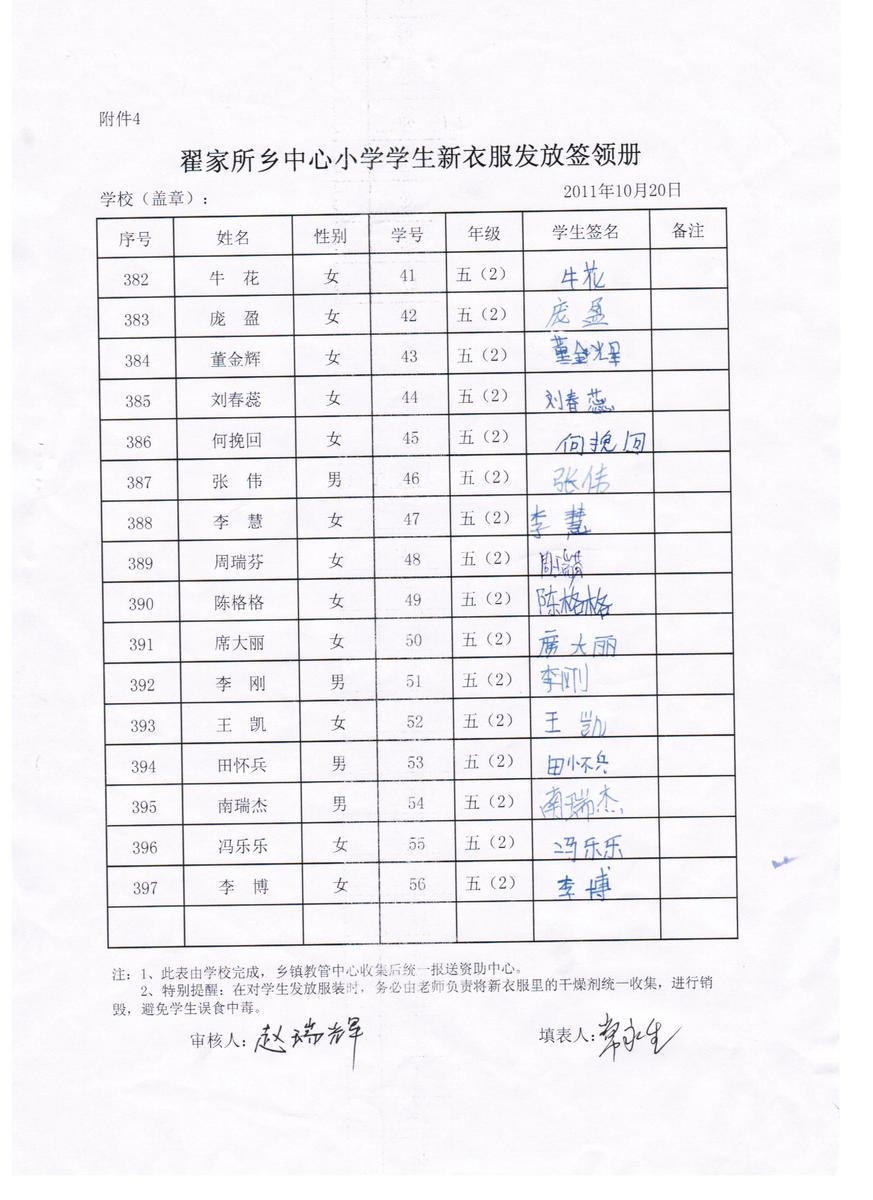 附件4
翟家所乡中心小学学生新衣服发放签领册
学校（盖章）： 2011年10月20日
序号 姓名 性别 学号 年级 学生签名 备注
382 牛 花 女 41 五（2） 牛花
383 庞 盈 女 42 五（2） 庞盈
384 董金辉 女 43 五（2） 董金辉
385 刘春蕊 女 44 五（2） 刘春蕊
386 何挽回 女 45 五（2） 何挽回
387 张 伟 男 46 五（2） 张伟
388 李 慧 女 47 五（2） 李慧
389 周瑞芬 女 48 五（2）
390 陈格格 女 49 五（2） 陈格格
391 席大丽 女 50 五（2） 席大丽
392 李 刚 男 51 五（2） 李刚
393 王 凯 女 52 五（2） 王凯
394 田怀兵 男 53 五（2） 田怀兵
395 南瑞杰 男 54 五（2） 南瑞杰
396 冯乐乐 女 55 五（2） 冯乐乐
397 李 博 女 56 五（2） 李博
注：1、此表由学校完成，乡镇教管中心收集后统一报送资助中心。
2、特别提醒：在对学生发放服装时，务必由老师负责将新衣服里的干燥剂统一收集，进行销
毁，避免学生误食中毒。
审核人：赵瑞辉 填表人：常永生